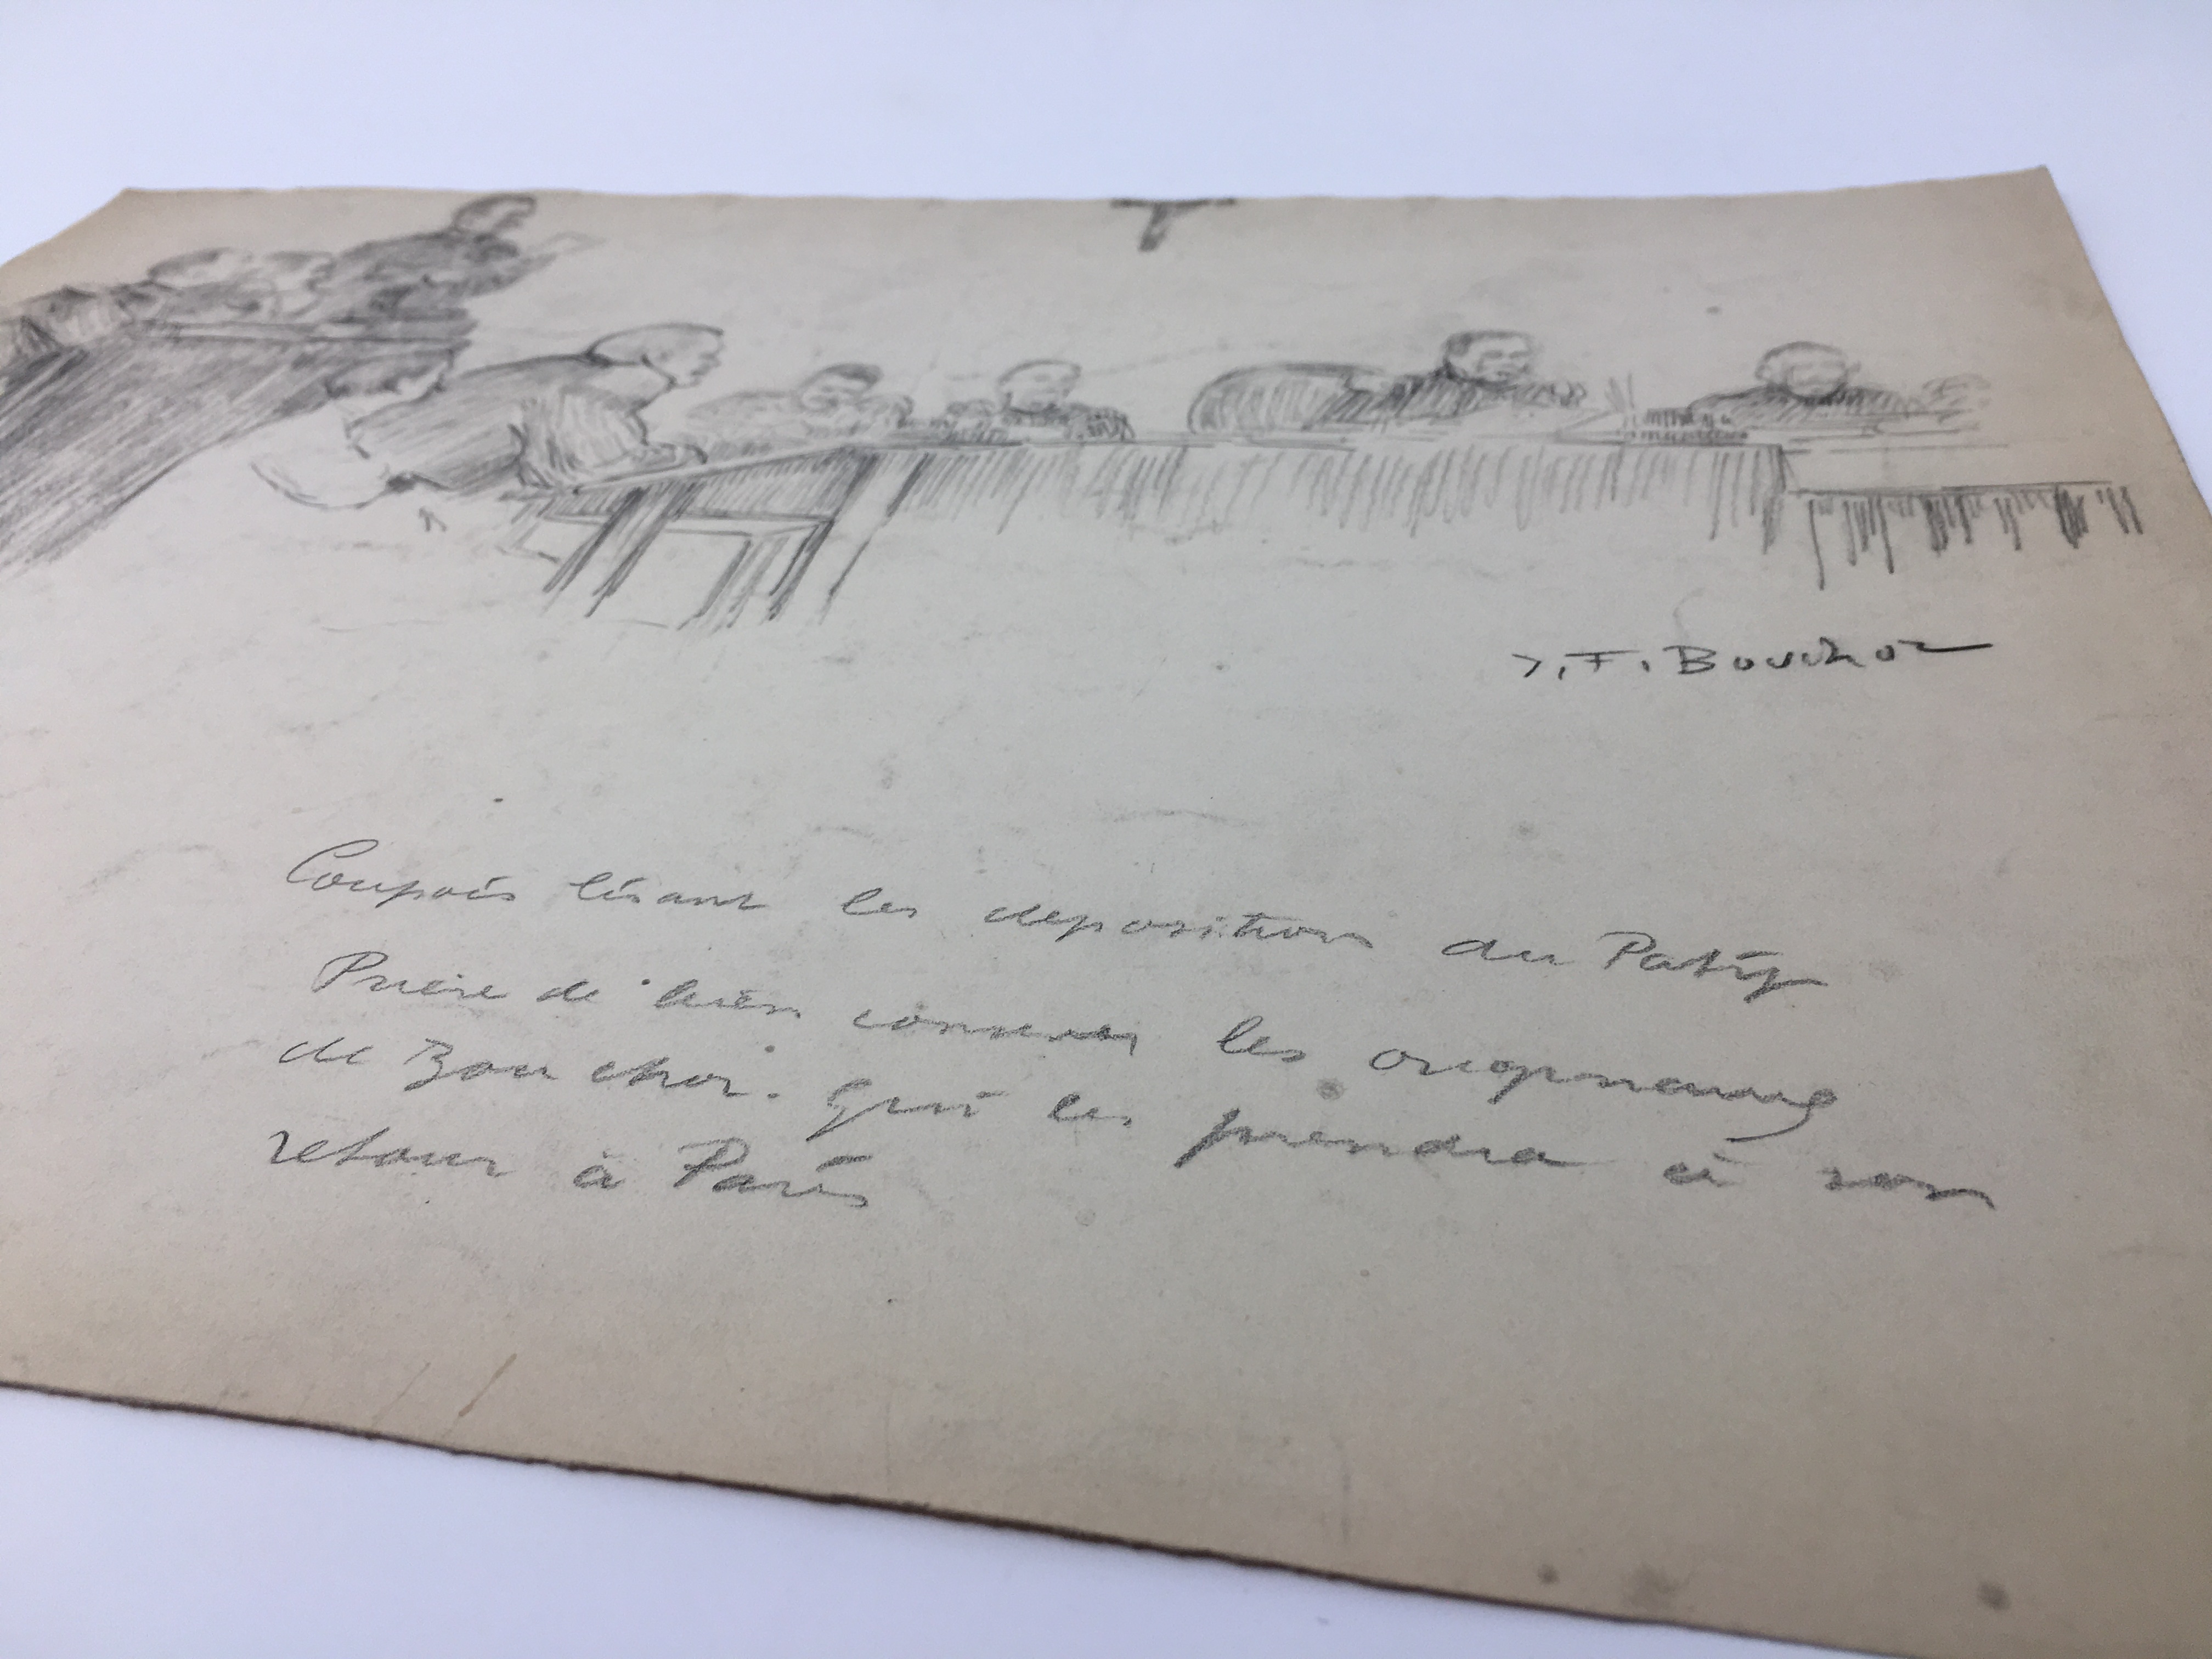 J. F. Bouchor
Coupois lisant les depositions du Paty
Prière de bien conserver les originaux
de Bouchor. qui les prendra à son
retour à Paris